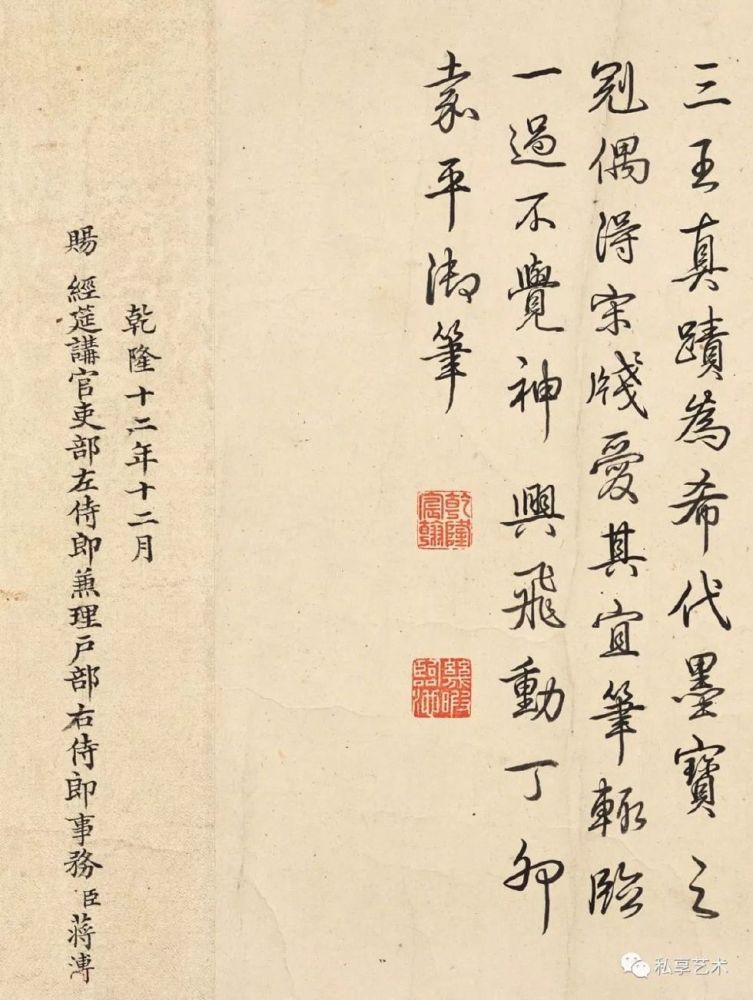 三王真蹟為希代墨寶之
冠偶得宋牋愛其宜筆輙臨
一過不覺神興飛動丁卯
嘉平御筆
乾隆
宸翰
幾暇
臨池
乾隆十二年十二月
賜經筵講官吏部左侍郎兼理戶部右侍郎事務臣蔣溥
私享艺术